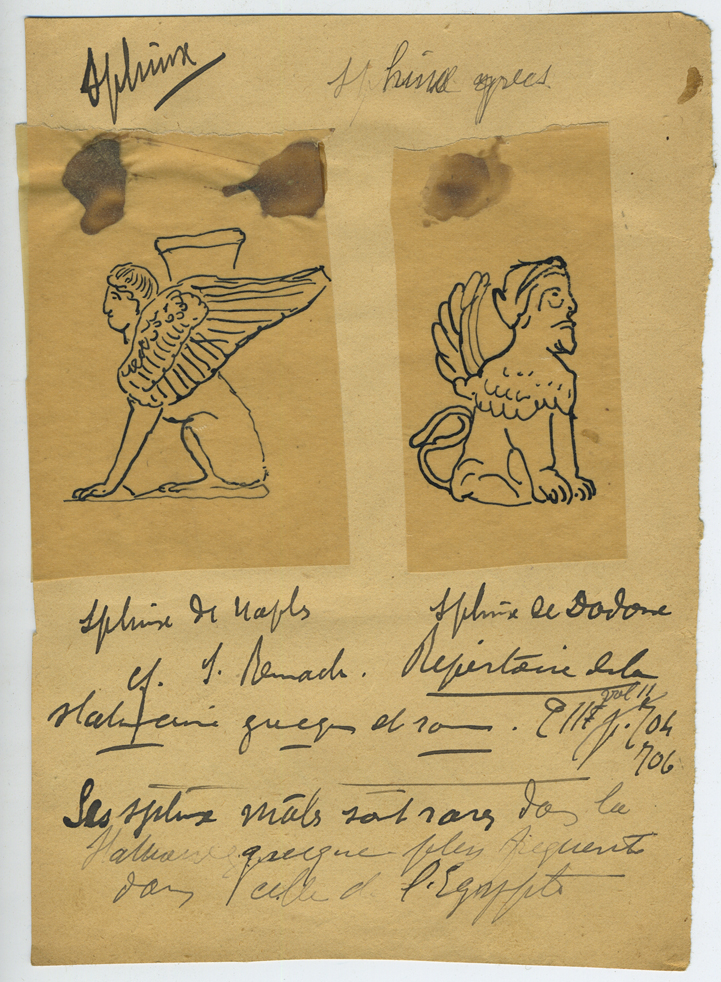 Sphinx
Sphinx grecs
Sphinx de Naples
Sphinx de Dodone
cf. S. Reinach. Répertoire de la
Statuaire grecque et rom.
vol II
p. 704
706
Les sphinx mâles sont rares dans la
Statuaire grecque plus fréquents
dans celle de l'Egypte